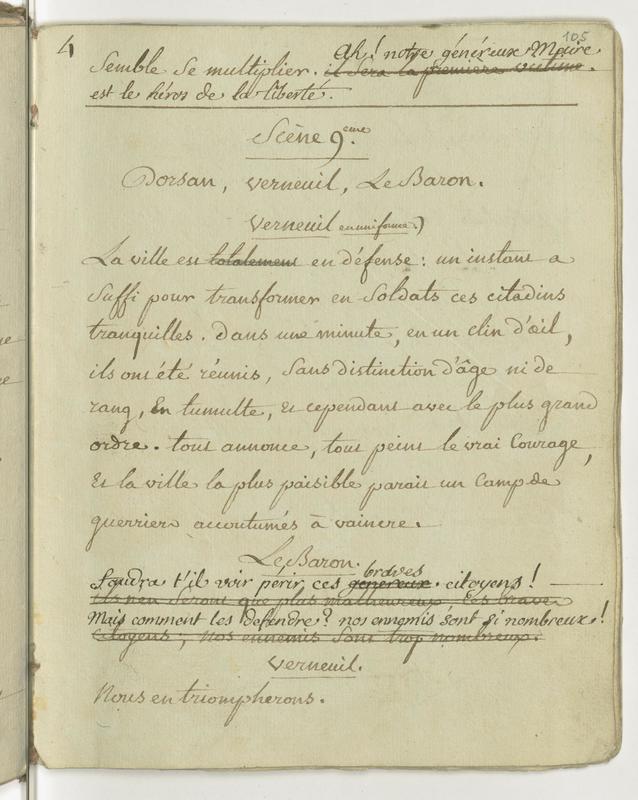 4
105
Ah! notre généreux Maire
Semble se multiplier. il sera la premiere victime.
est le héros de la liberté.
Scène 9.eme
Dorsan, Verneuil, Le Baron.
Verneuil en uniforme.)
La ville est totalement en défense : un instant a
suffi pour transformer en Soldats ces citadins
tranquilles. Dans une minute, en un clin d'œil,
ils ont été réunis, Sans distinction d'âge ni de
rang, En tumulte, et cependant avec le plus grand
ordre. tout annonce, tout peint le vrai Courage,
Et la ville la plus paisible parait un Camp de
guerriers accoutumés à vaincre.
Le Baron.
braves
faudra t'il voir périr ces genereux. citoyens !
ils n'en Seront que plus malheureux Ces braves
Mais comment les défendre? nos ennemis sont si nombreux !
Citoyens ; nos ennemis Sont trop nombreux.
Verneuil.
Nous en triompherons.